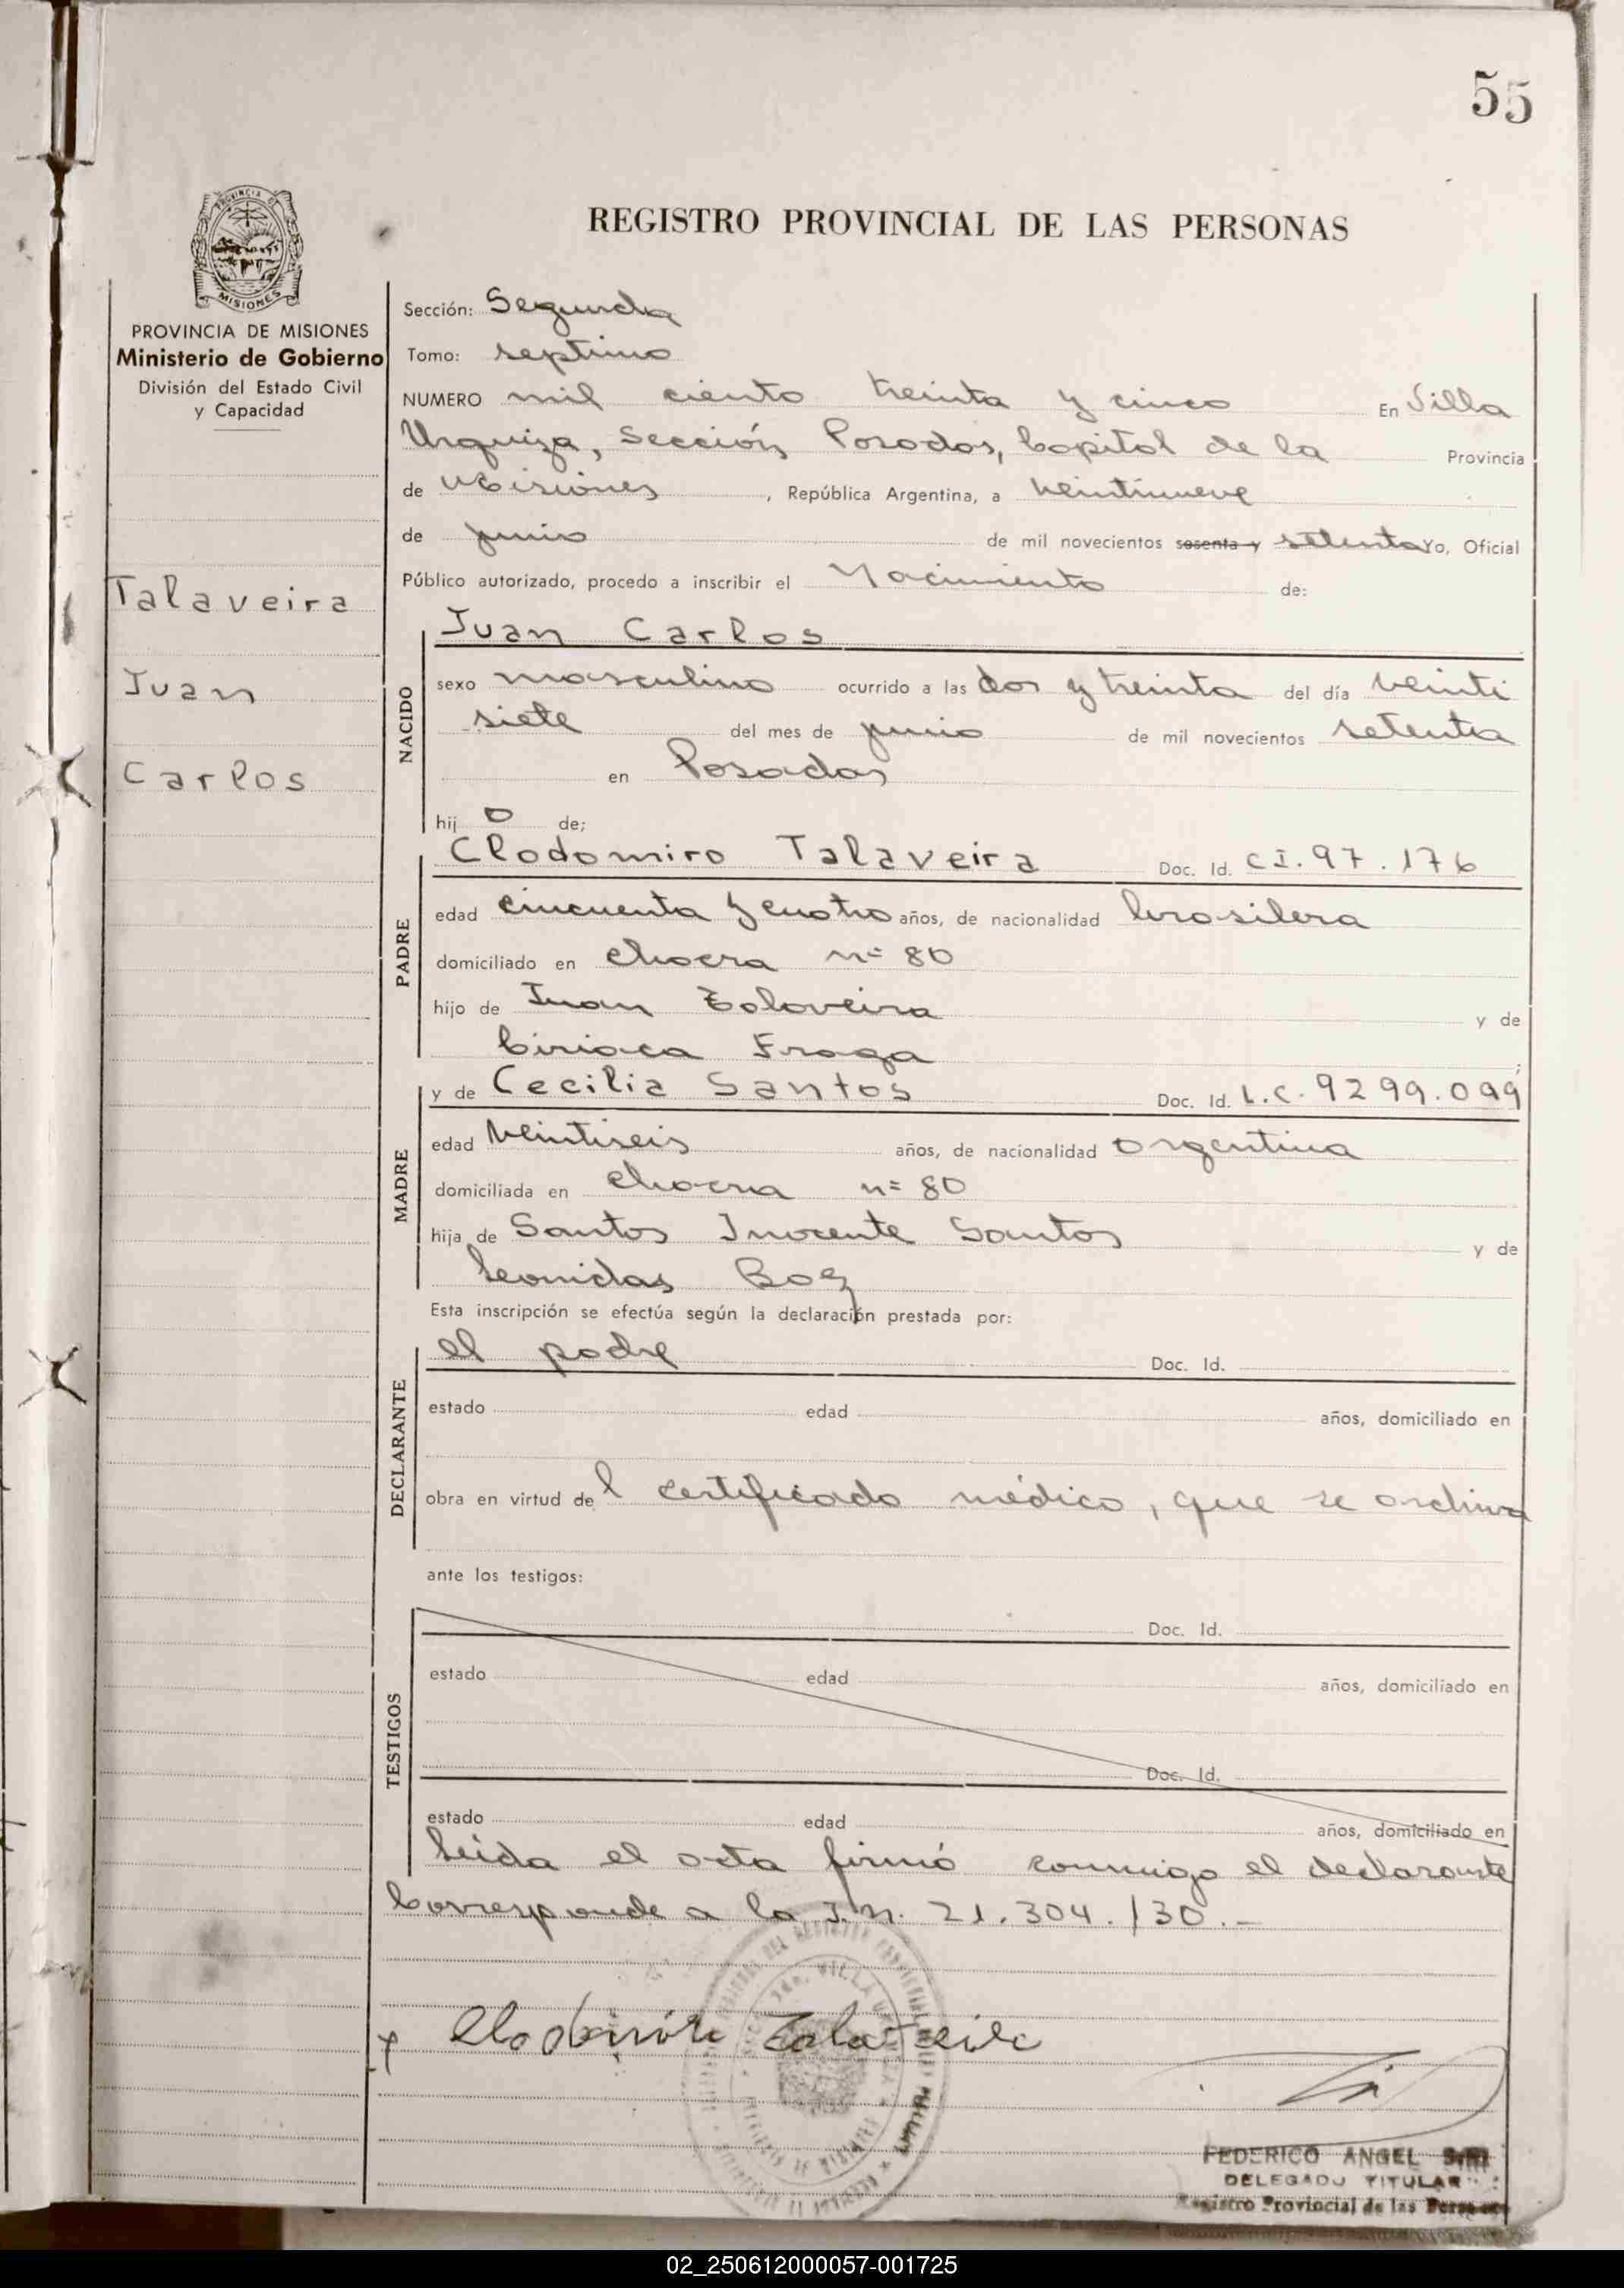 55
REGISTRO PROVINCIAL DE LAS PERSONAS
PROVINCIA DE MISIONES
Ministerio de Gobierno
División del Estado Civil
y Capacidad
Talaveira
Juan
Carlos
Sección: Segunda
Tomo: septimo
NUMERO mil ciento treinta y cinco En Villa
Urquiza, Sección Posadas, Capital de la Provincia
de Misiones, República Argentina, a veintinueve
de junio de mil novecientos sesenta y setenta Yo, Oficial
Público autorizado, procedo a inscribir el Nacimiento de:
NACIDO
Juan Carlos
sexo masculino ocurrido a las dos y treinta del día veinti
siete del mes de junio de mil novecientos setenta
en Posadas
hij o de;
PADRE
Clodomiro Talaveira Doc. Id. CI. 97.176
edad cincuenta y cuatro años, de nacionalidad brasilera
domiciliado en chacra nº 80
hijo de Juan Talaveira y de
Ciriaca Fraga
MADRE
y de Cecilia Santos Doc. Id. L.C. 9299.099
edad veintiseis años, de nacionalidad argentina
domiciliada en chacra nº 80
hija de Santos Inocente Santos y de
Leonidas Boz
Esta inscripción se efectúa según la declaración prestada por:
DECLARANTE
el padre Doc. Id.
estado edad años, domiciliado en
obra en virtud del certificado médico, que se archiva
ante los testigos:
TESTIGOS
Doc. Id.
estado edad años, domiciliado en
Doc. Id.
estado edad años, domiciliado en
Leida el acta firmó conmigo el declarante
Corresponde a la I.N. 21.304.130.-
FEDERICO ANGEL
DELEGADO TITULAR
Registro Provincial de las Personas
02_250612000057-001725